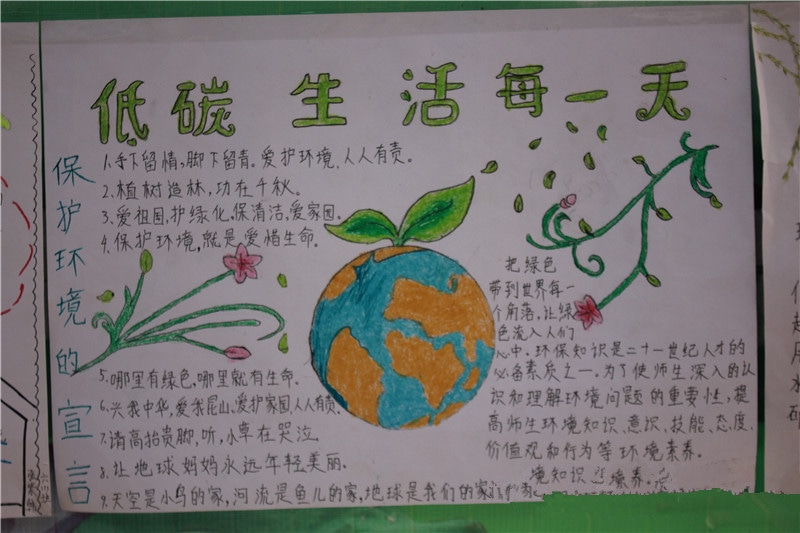 低碳生活每一天
保护环境的宣言
1.手下留情,脚下留青。爱护环境,人人有责。
2.植树造林,功在千秋。
3.爱祖国,护绿化。保清洁,爱家园。
4.保护环境,就是爱惜生命。
5.哪里有绿色,哪里就有生命。
6.兴我中华,爱我昆山,爱护家园,人人有责。
7.请高抬贵脚,听,小草在哭泣。
8.让地球妈妈永远年轻美丽。
9.天空是小鸟的家,河流是鱼儿的家,地球是我们的家
把绿色
带到世界每一
个角落,让绿
色流入人们
心中。环保知识是二十一世纪人才的
必备素质之一。为了使师生深入的认
识和理解环境问题的重要性,提
高师生环境知识、意识、技能、态度、
价值观和行为等环境素养。
境知识 境素养。